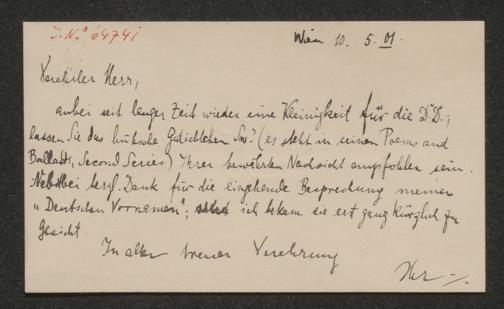 I.N. 64741
Wien 10. 5. 01.
Verehrter Herr,
anbei seit langer Zeit wieder eine Kleinigkeit für die D.D.;
lassen Sie das hübsche Gedichtchen (es steht in seinen Poems and
Ballads, Second Series) Ihrer bewährten Nachsicht empfohlen sein.
Nebstbei herzl. Dank für die eingehende Besprechung meiner
„Deutschen Vornamen"; ich bekam sie erst ganz kürzlich zu
Gesicht.
In alter treuer Verehrung
Ihr